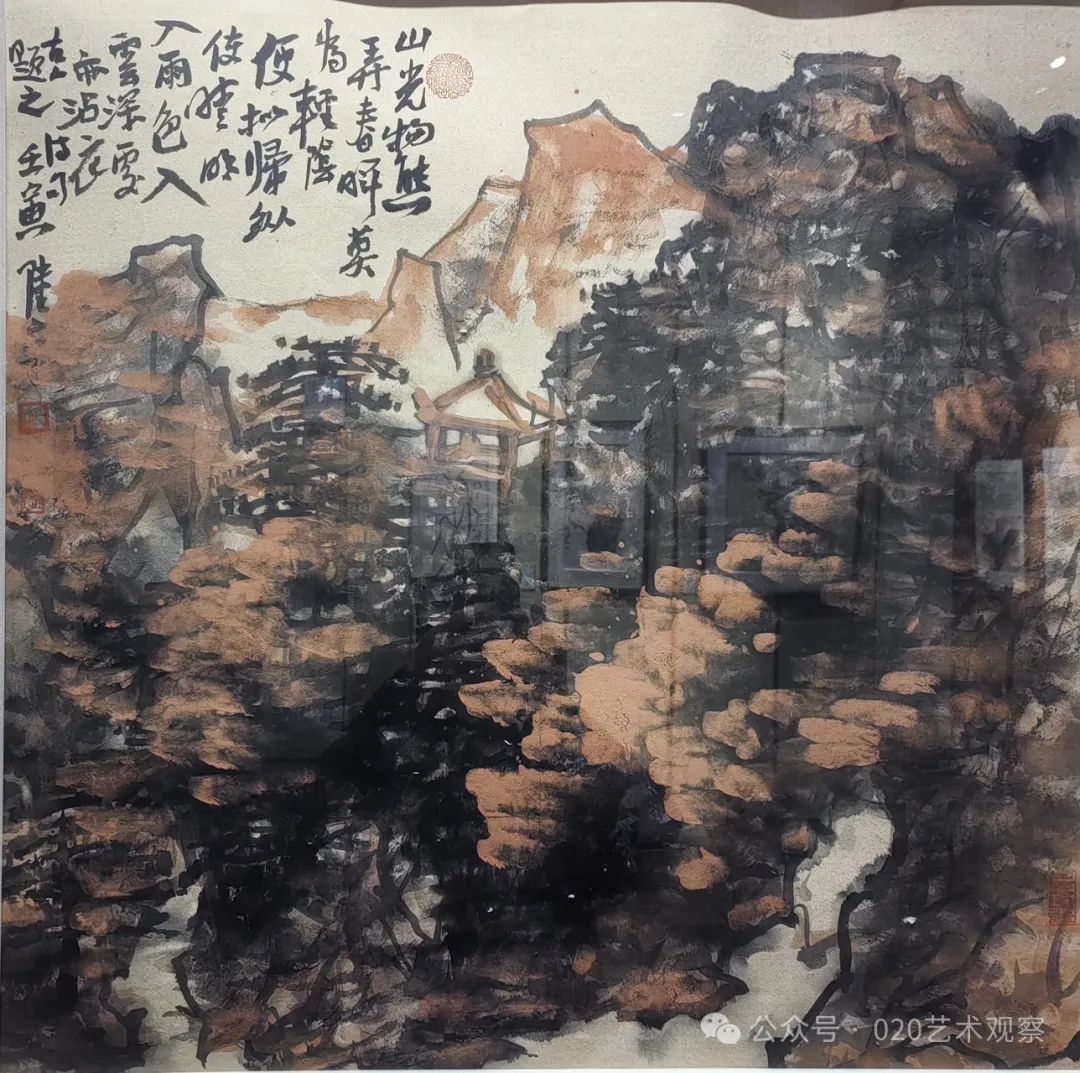 山光物態
弄春暉莫
為輕陰
便擬歸縱
使晴明
入雨色入
雲深處
亦沾衣
古人詩句
題之壬寅陸
公众号 · 020艺术观察